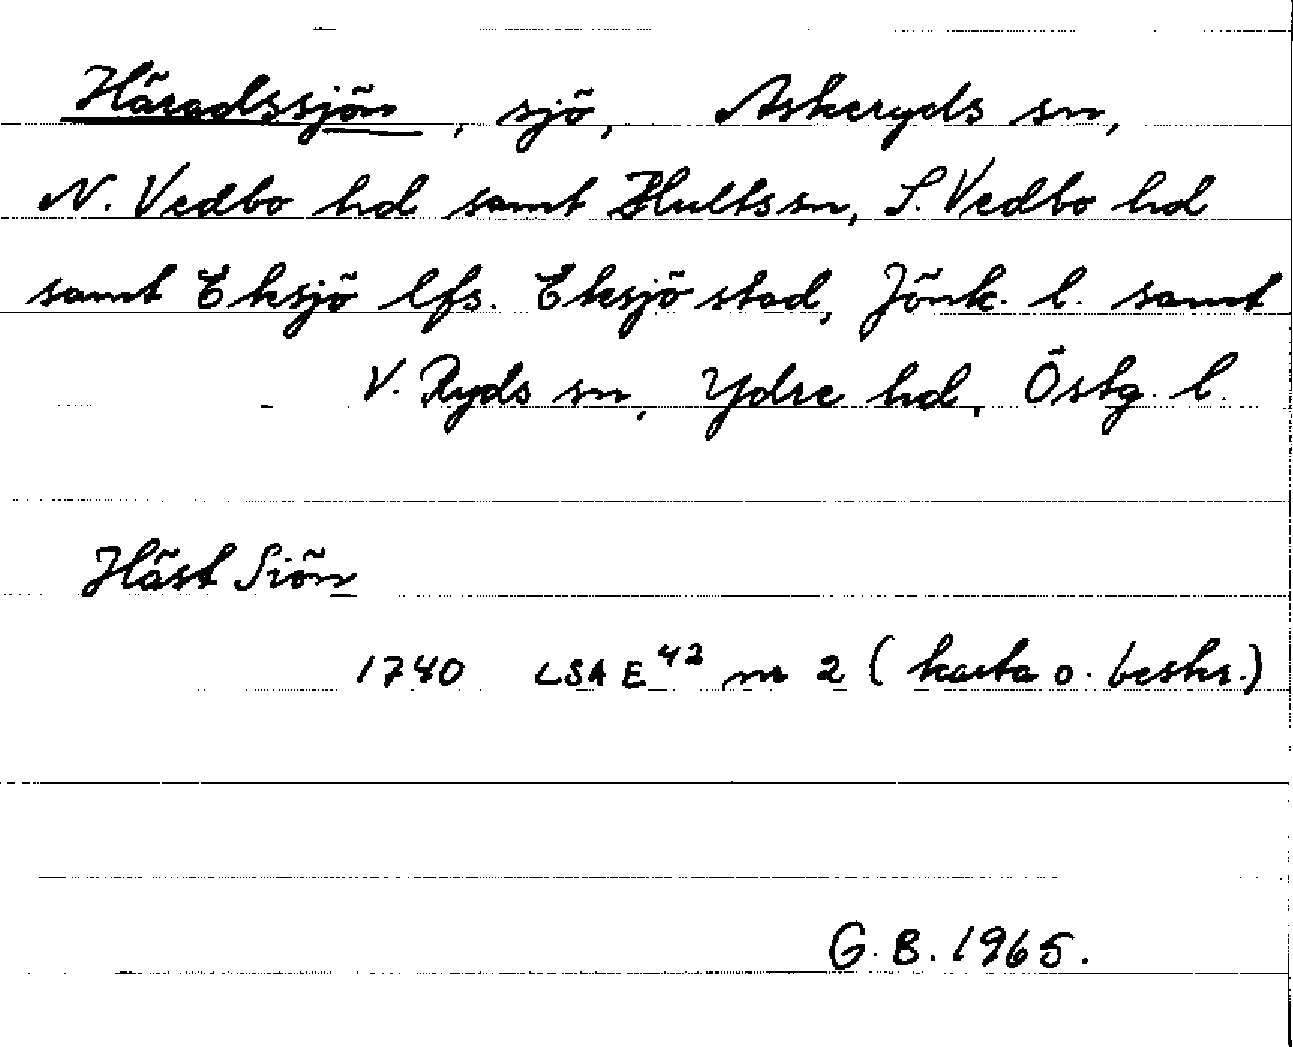 Häradssjön, sjö, Askeryds sn,
N. Vedbo hd samt Hults sn, S. Vedbo hd
samt Eksjö lfs. Eksjö stad, Jönk. l. samt
V. Ryds sn, Ydre hd, Östg. l.
Häst Siön
1740 LSA E42 nr 2 (karta o. beskr.)
G. B. 1965.